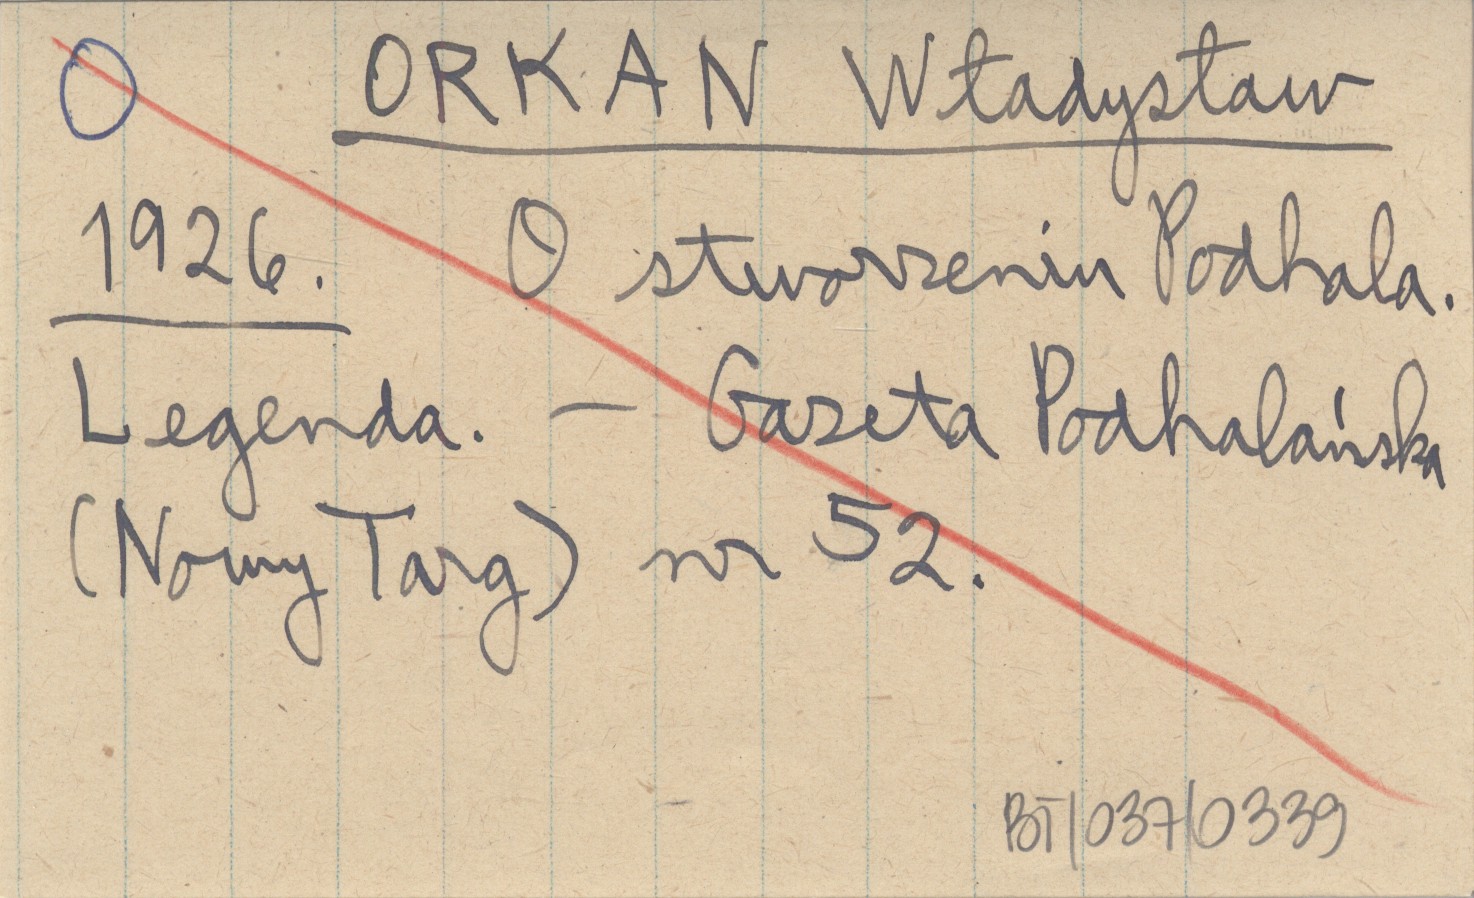 O ORKAN Władysław
1926. O stworzeniu Podhala.
Legenda. — Gazeta Podhalańska
(Nowy Targ) nr 52.
BT/037/0339